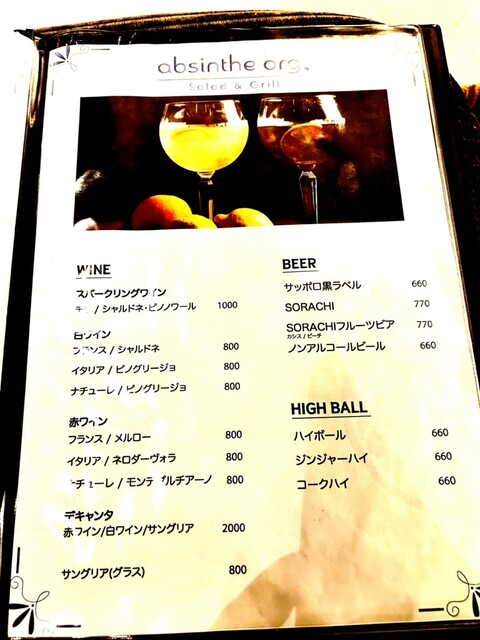 absinthe org.
Salad & Grill
WINE
スパークリングワイン
チリ / シャルドネ・ピノノワール 1000
白ワイン
フランス / シャルドネ 800
イタリア / ピノグリージョ 800
ナチューレ / ピノグリージョ 800
赤ワイン
フランス / メルロー 800
イタリア / ネロダーヴォラ 800
ナチューレ / モンテプルチアーノ 800
デキャンタ
赤ワイン/白ワイン/サングリア 2000
サングリア(グラス) 800
BEER
サッポロ黒ラベル 660
SORACHI 770
SORACHIフルーツビア 770
カシス / ピーチ
ノンアルコールビール 660
HIGH BALL
ハイボール 660
ジンジャーハイ 660
コークハイ 660